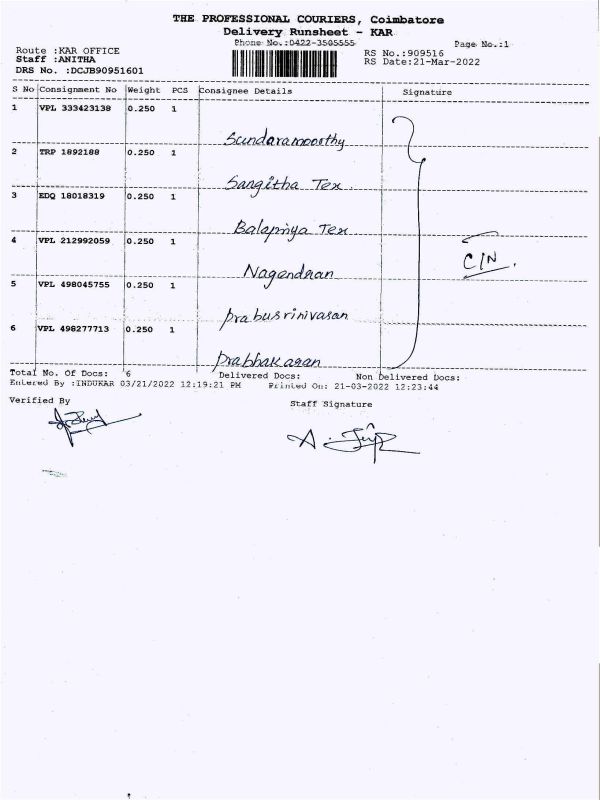 THE PROFESSIONAL COURIERS, Coimbatore
Delivery Runsheet - KAR
Phone No.:0422-3505555
Page No.:1
Route :KAR OFFICE
RS No.:909516
Staff :ANITHA
RS Date:21-Mar-2022
DRS No. :DCJB90951601
S No Consignment No Weight PCS Consignee Details Signature
1 VPL 333423138 0.250 1
Sundaramoorthy
2 TRP 1892188 0.250 1
Sangitha Tex.
3 EDQ 18018319 0.250 1
Balapriya Tex
4 VPL 212992059 0.250 1
C/N.
Nagendran
5 VPL 498045755 0.250 1
Prabusrinivasan
6 VPL 498277713 0.250 1
Prabhakaran
Total No. Of Docs: 6 Delivered Docs: Non Delivered Docs:
Entered By :INDUKAR 03/21/2022 12:19:21 PM Printed On: 21-03-2022 12:23:44
Verified By
Staff Signature